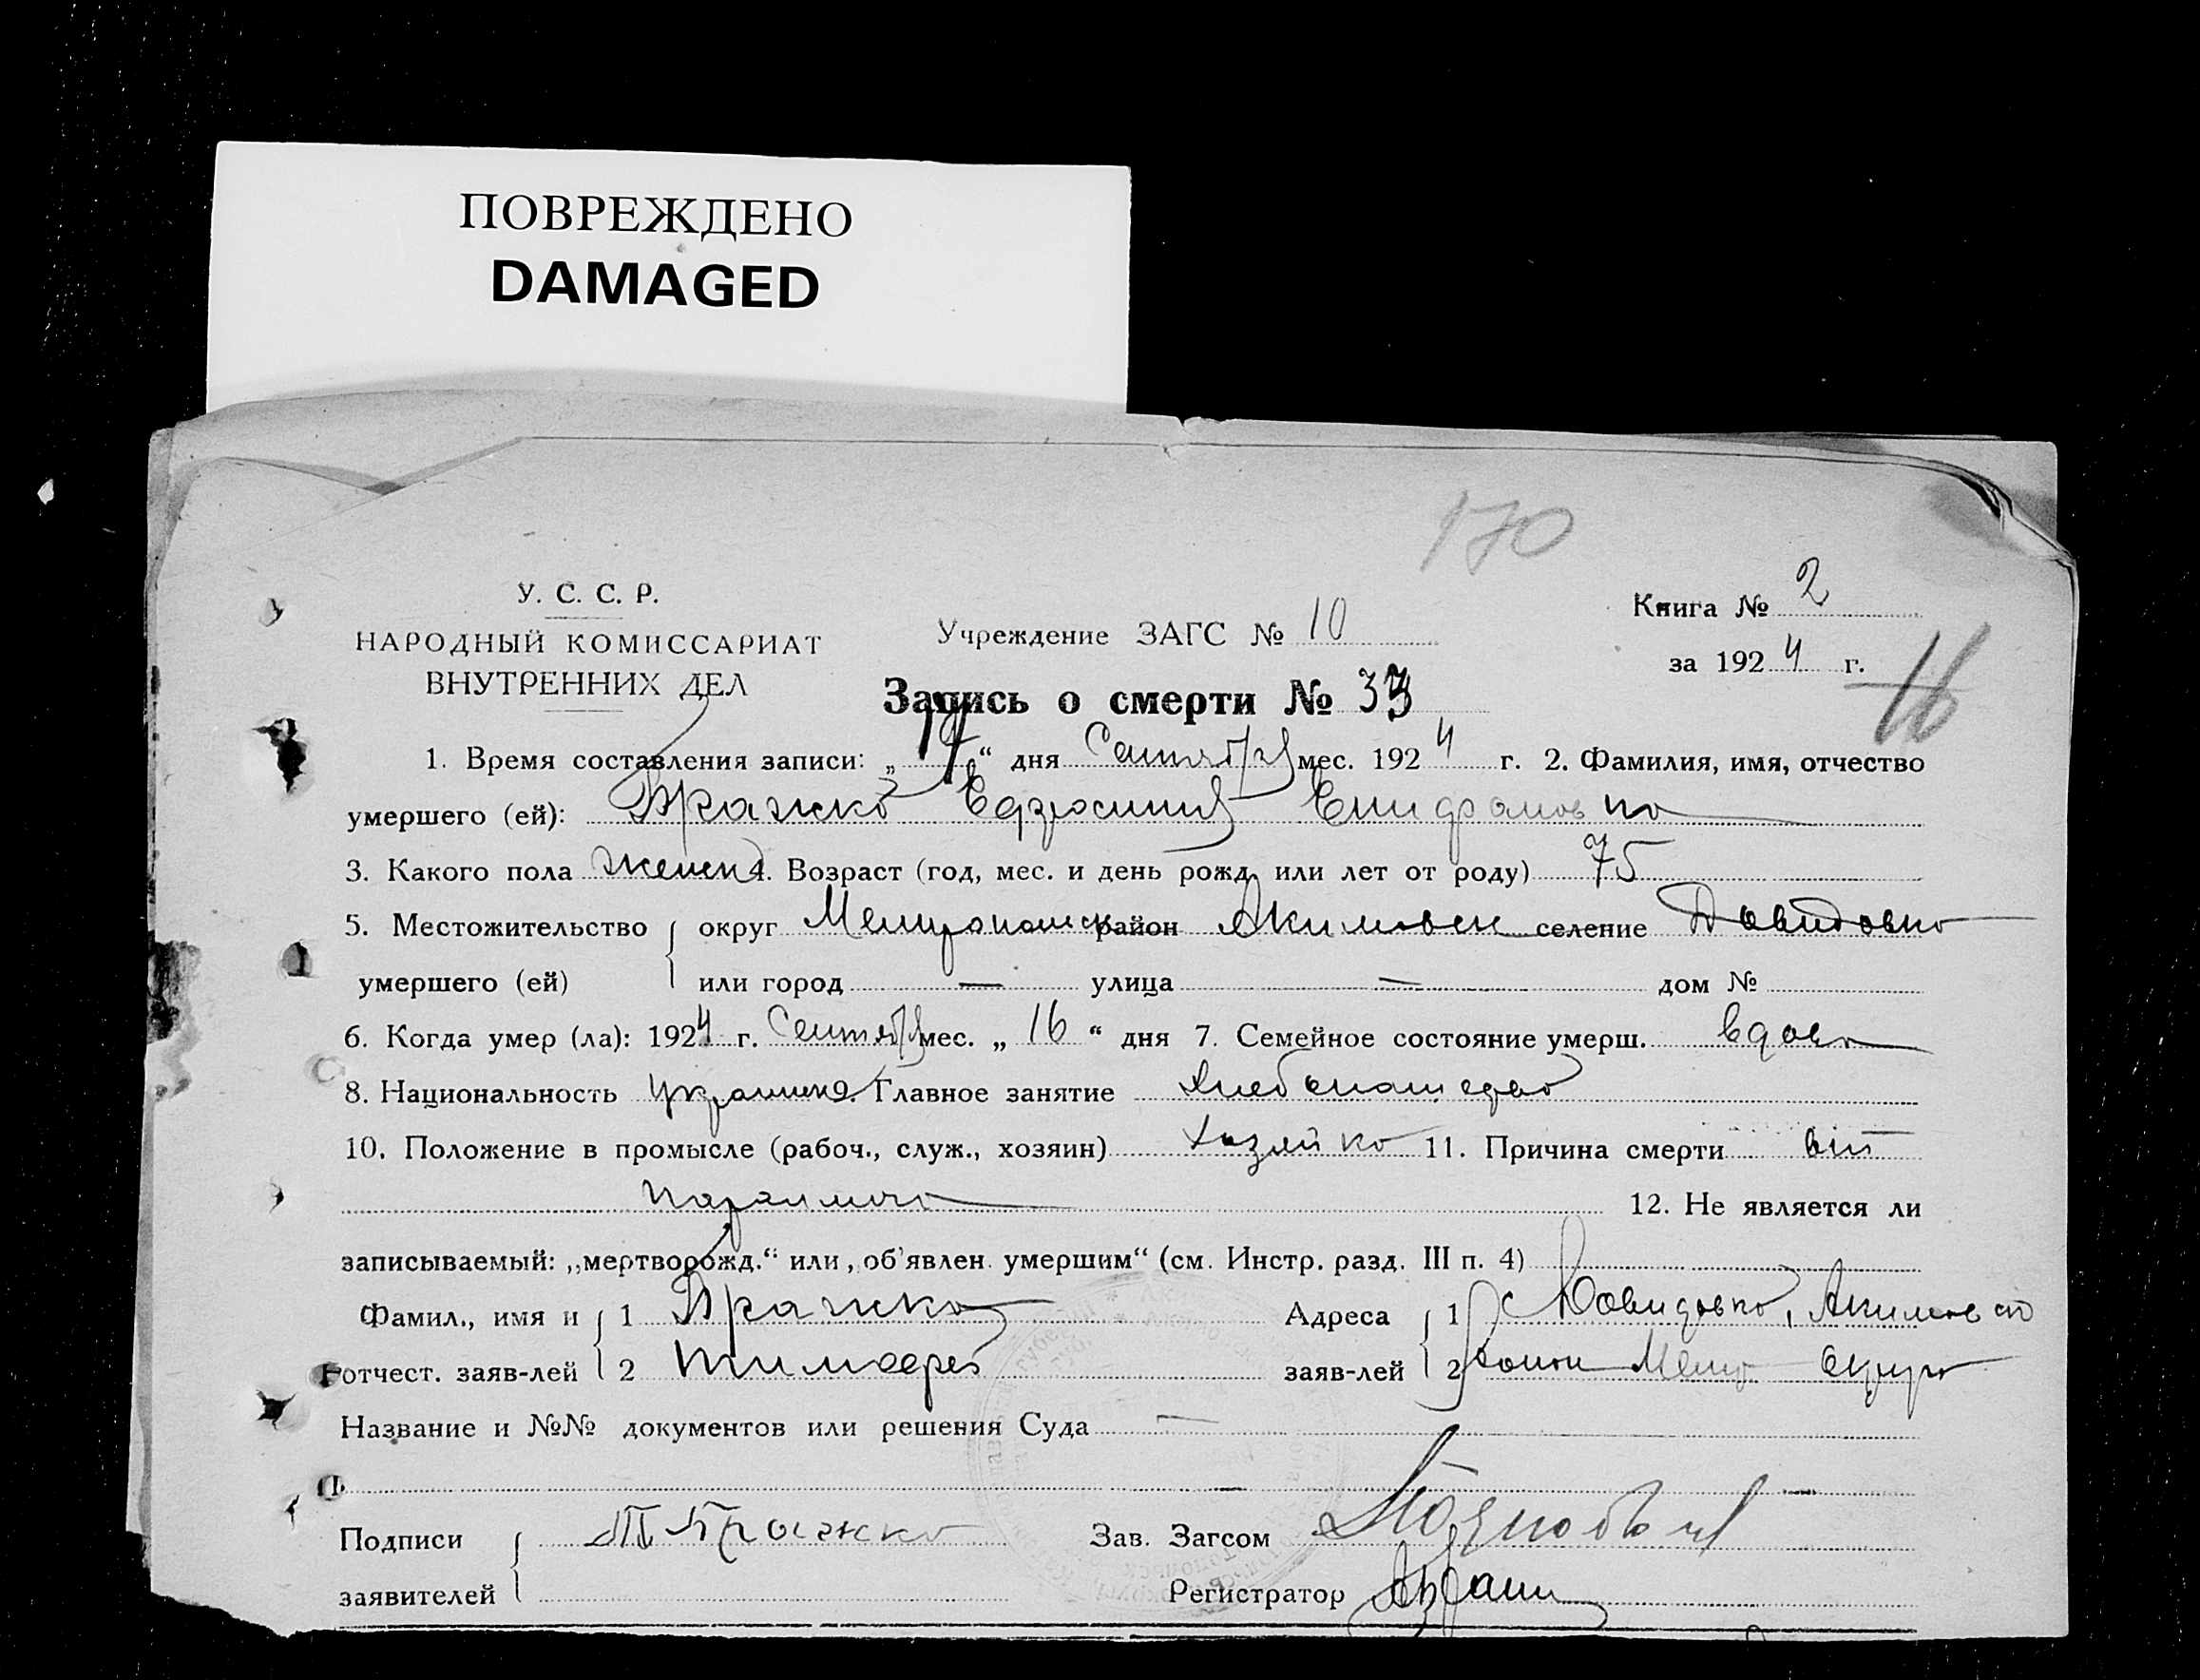 ПОВРЕЖДЕНО
DAMAGED
170
У. С. С. Р.
НАРОДНЫЙ КОМИССАРИАТ
ВНУТРЕННИХ ДЕЛ
Учреждение ЗАГС № 10
Книга № 2
за 1924 г.
16
Запись о смерти № 33
1. Время составления записи: „17“ дня Сентября мес. 1924 г. 2. Фамилия, имя, отчество
умершего (ей): Бражко Ефросиния
3. Какого пола женск 4. Возраст (год, мес. и день рожд. или лет от роду) 75
5. Местожительство округ Мелитопольск район Акимовск селение Давидовка
умершего (ей) или город — улица — дом №
6. Когда умер (ла): 1924 г. Сентября мес. „ 16 “ дня 7. Семейное состояние умерш. вдова
8. Национальность украинка 9. Главное занятие хлебопашество
10. Положение в промысле (рабоч., служ., хозяин) хозяйка 11. Причина смерти от
паралича 12. Не является ли
записываемый: „мертворожд.“ или „об'явлен умершим“ (см. Инстр. разд. III п. 4)
Фамил., имя и 1 Бражко Адреса 1 с Давидовка, Акимовск
отчест. заяв-лей 2 Тимофей заяв-лей 2 района Мелит округа
Название и №№ документов или решения Суда —
Подписи Т Бражко Зав. Загсом
заявителей Регистратор